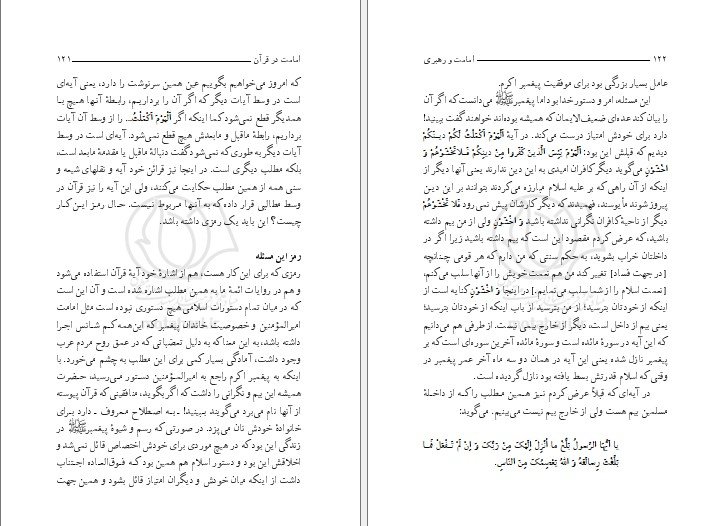 امامت در قرآن ۱۲۱
که امروز می‌خواهیم بگوییم عین همین سرنوشت را دارد، یعنی آیه‌ای
است در وسط آیات دیگر که اگر آن را برداریم، رابطهٔ آنها هیچ با
همدیگر قطع نمی‌شود کما اینکه اگر اَلْیَوْمَ اَکْمَلْتُ... را از وسط آن آیات
برداریم، رابطهٔ ماقبل و مابعدش هیچ قطع نمی‌شود. آیه‌ای است در وسط
آیات دیگر به طوری که نمی‌شود گفت دنبالهٔ ماقبل یا مقدمهٔ مابعد است،
بلکه مطلب دیگری است. در اینجا نیز قرائن خود آیه و نقلهای شیعه و
سنی همه از همین مطلب حکایت می‌کنند، ولی این آیه را نیز قرآن در
وسط مطالبی قرار داده که به آنها مربوط نیست. حال رمز این کار
چیست؟ این باید یک رمزی داشته باشد.
رمز این مسئله
رمزی که برای این کار هست، هم از اشارهٔ خود آیهٔ قرآن استفاده می‌شود
و هم در روایات ائمهٔ ما به همین مطلب اشاره شده است و آن این است
که در میان تمام دستورات اسلامی هیچ دستوری نبوده است مثل امامت
امیرالمؤمنین و خصوصیت خاندان پیغمبر که این همه کم شانس اجرا
داشته باشد، به این معنا که به دلیل تعصباتی که در عمق روح مردم عرب
وجود داشت، آمادگی بسیار کمی برای این مطلب به چشم می‌خورد. با
اینکه به پیغمبر اکرم راجع به امیرالمؤمنین دستور می‌رسید، حضرت
همیشه این بیم و نگرانی را داشت که اگر بگوید، منافقینی که قرآن پیوسته
از آنها نام می‌برد می‌گویند ببینید! ـ به اصطلاح معروف ـ دارد برای
خانوادهٔ خودش نان می‌پزد. در صورتی که رسم و شیوهٔ پیغمبر ﷺ در
زندگی این بود که در هیچ موردی برای خودش اختصاص قائل نمی‌شد و
اخلاقش این بود و دستور اسلام هم همین بود که فوق‌العاده اجتناب
داشت از اینکه میان خودش و دیگران امتیاز قائل بشود و همین جهت
۱۲۲ امامت و رهبری
عامل بسیار بزرگی بود برای موفقیت پیغمبر اکرم.
این مسئله، امر و دستور خدا بود اما پیغمبر ﷺ می‌دانست که اگر آن
را بیان کند عده‌ای ضعیف‌الایمان که همیشه بوده‌اند خواهند گفت ببینید!
دارد برای خودش امتیاز درست می‌کند. در آیهٔ اَلْیَوْمَ اَکْمَلْتُ لَکُمْ دینَکُمْ
دیدیم که قبلش این بود: اَلْیَوْمَ یَئِسَ الَّذینَ کَفَروا مِنْ دینِکُمْ فَلا تَخْشَوْهُمْ وَ
اخْشَوْنِ می‌گوید دیگر کافران امیدی به این دین ندارند یعنی آنها دیگر از
اینکه از آن راهی که بر علیه اسلام مبارزه می‌کردند بتوانند بر این دین
پیروز شوند مأیوسند، فهمیدند که دیگر کارشان پیش نمی‌رود فَلا تَخْشَوْهُمْ
دیگر از ناحیهٔ کافران نگرانی نداشته باشید وَ اخْشَوْنِ ولی از من بیم داشته
باشید، که عرض کردم مقصود این است که بیم داشته باشید زیرا اگر در
داخلتان خراب بشوید، به حکم سنتی که من دارم که هر قومی چنانچه
[در جهت فساد] تغییر کند من هم نعمت خویش را از آنها سلب می‌کنم،
[نعمت اسلام را از شما سلب می‌نمایم.] در اینجا وَ اخْشَوْنِ کنایه است از
اینکه از خودتان بترسید؛ از من بترسید از باب اینکه از خودتان بترسید؛
یعنی بیم از داخل است، دیگر از خارج بیمی نیست. از طرفی هم می‌دانیم
که این آیه در سورهٔ مائده است و سورهٔ مائده آخرین سوره‌ای است که بر
پیغمبر نازل شده یعنی این آیه در همان دو سه ماه آخر عمر پیغمبر در
وقتی که اسلام قدرتش بسط یافته بود نازل گردیده است.
در آیه‌ای که قبلاً عرض کردم نیز همین مطلب را که از داخلهٔ
مسلمین بیم هست ولی از خارج بیم نیست می‌بینیم. می‌گوید:
یا اَیُّهَا الرَّسولُ بَلِّغْ ما اُنْزِلَ اِلَیْکَ مِنْ رَبِّکَ وَ اِنْ لَمْ تَفْعَلْ فَما
بَلَّغْتَ رِسالَتَهُ وَ اللهُ یَعْصِمُکَ مِنَ النّاسِ.